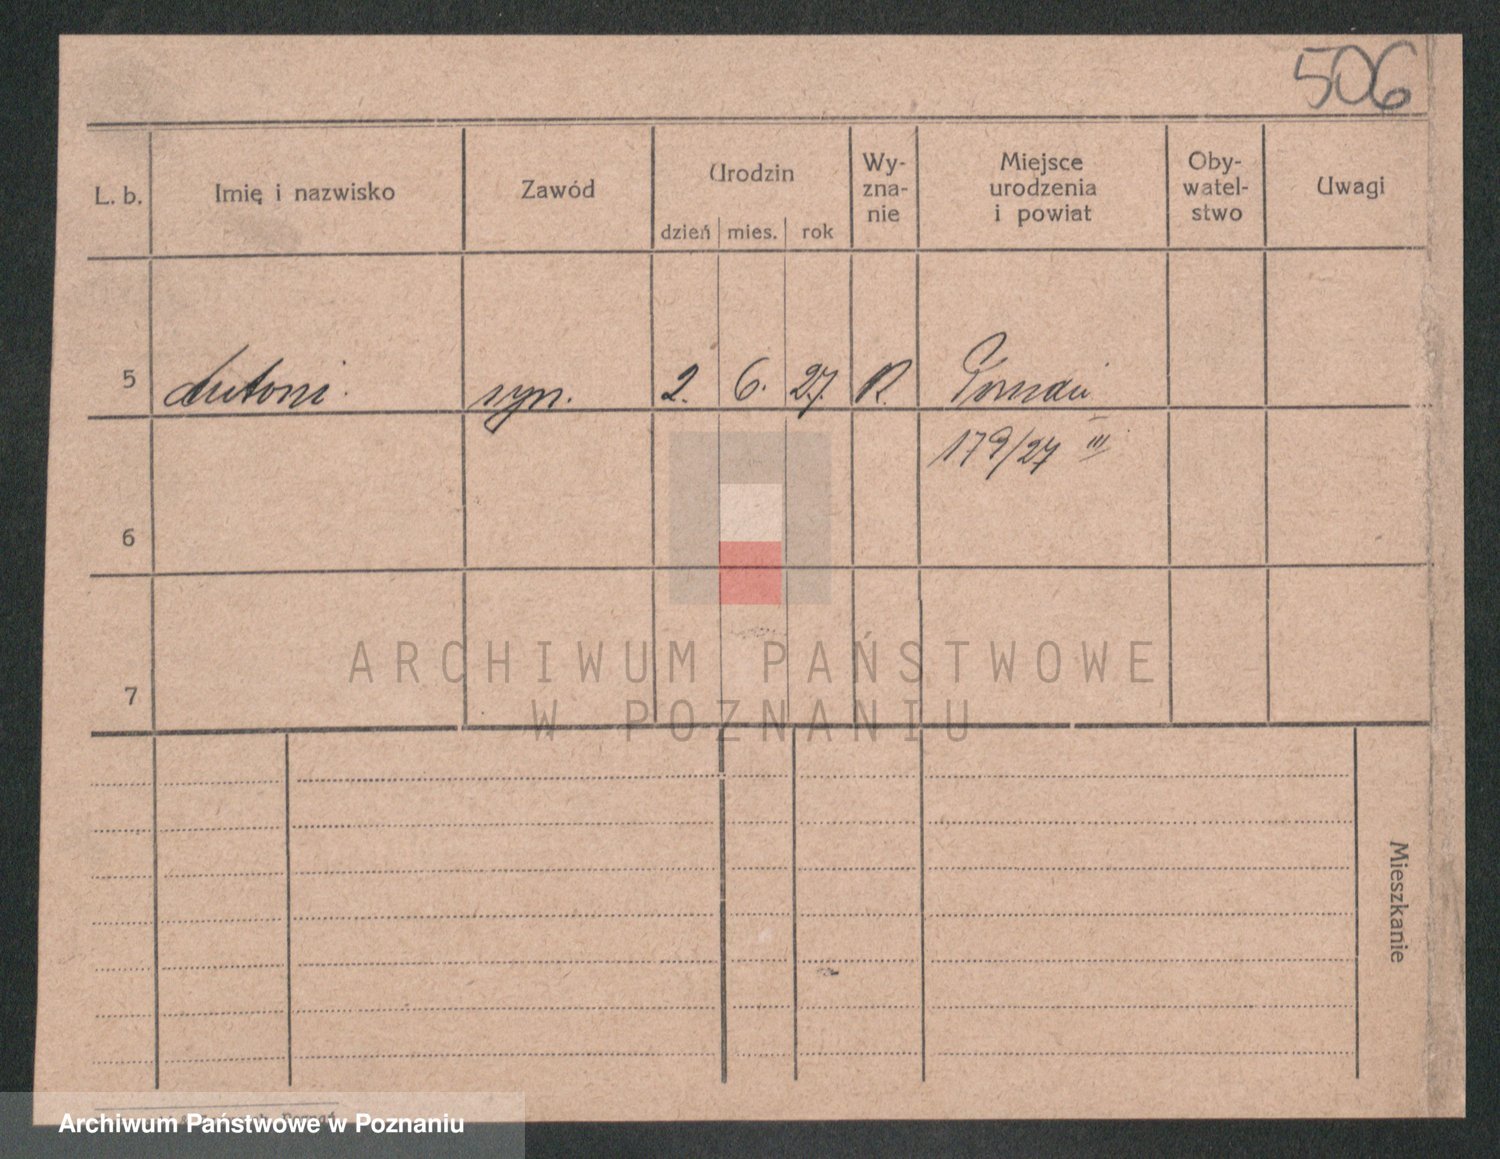 506
L. b. Imię i nazwisko Zawód Urodzin dzień mies. rok Wy-zna-nie Miejsce urodzenia i powiat Oby-watel-stwo Uwagi
5 Antoni syn. 2. 6. 27. R. Poznań
179/27 III
6
7
ARCHIWUM PAŃSTWOWE
W POZNANIU
Mieszkanie
Archiwum Państwowe w Poznaniu